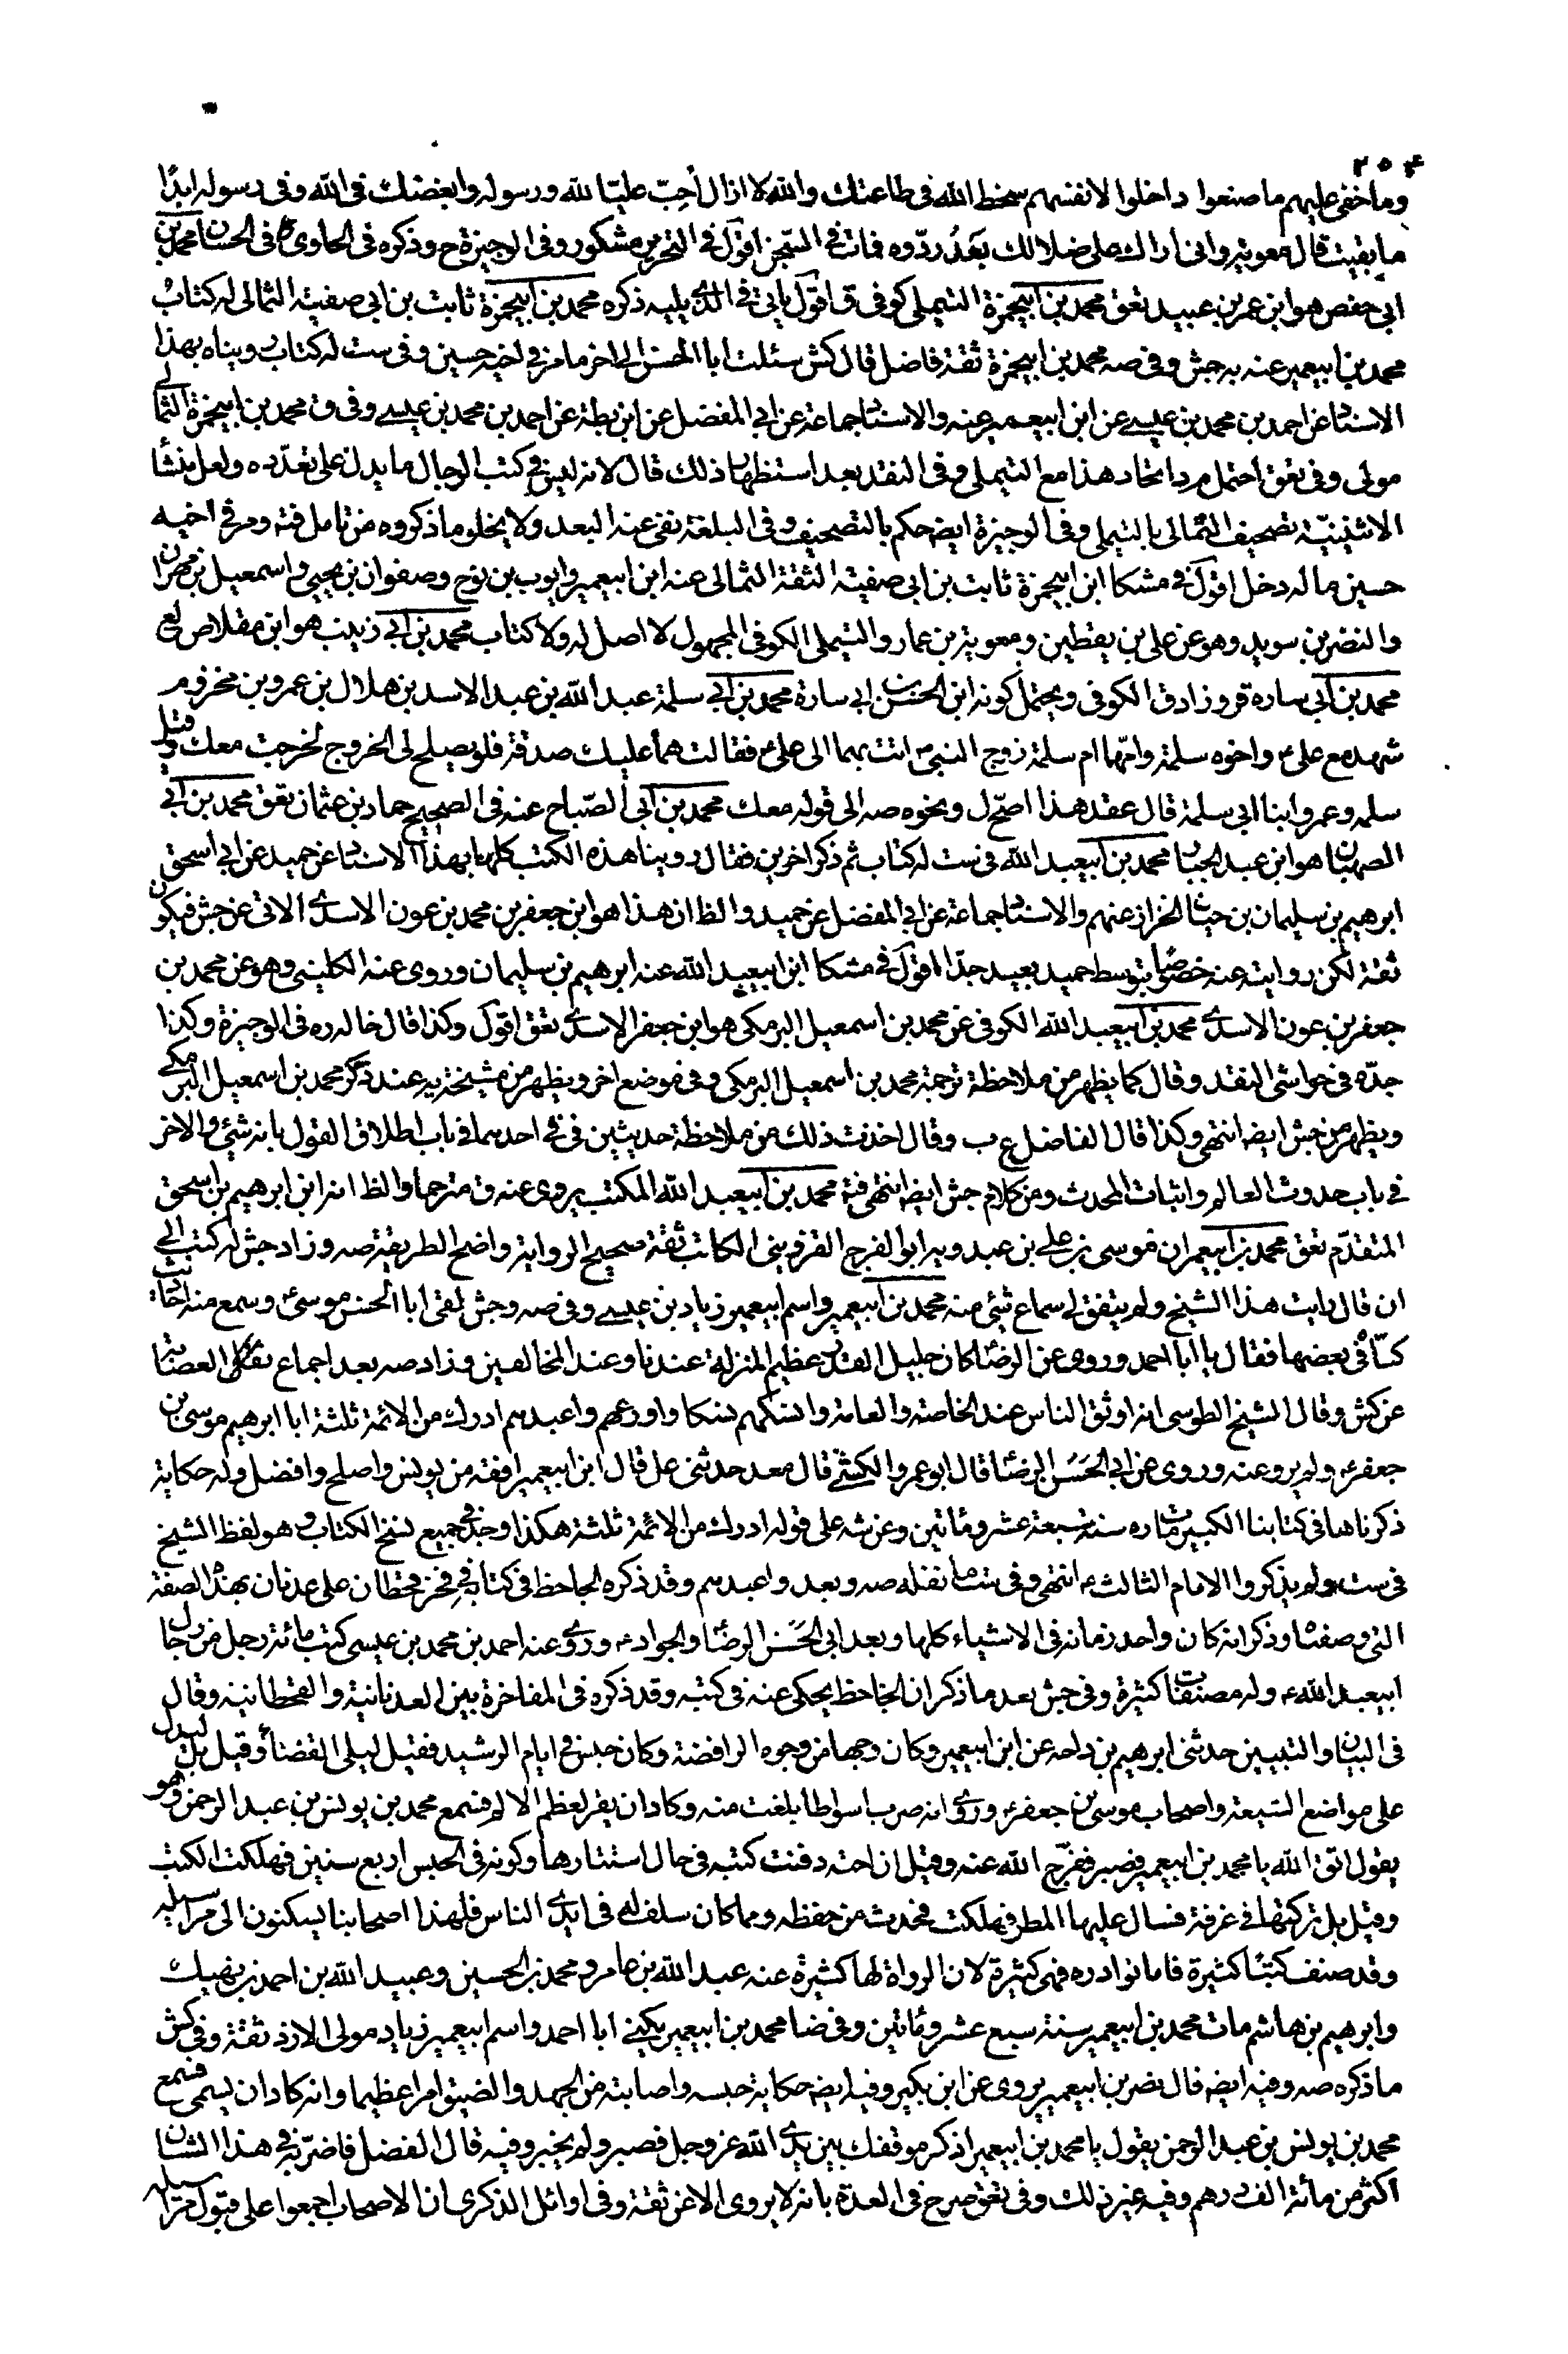 ٢٥٤
وما خفى عليهم ما صنعوا داخلوا لانفسهم سخط الله فى طاعتك والله لا ازال أحبّ عليّا لله ورسوله وابغضك فى الله وفى رسوله ابدًا
ما بقيت قال معوية وانى اراك على ضلالك بَعْدُ ردّوه فمات فى السّجن اقول فى التحرير مشكور وفى الوجيزة ح وذكره فى الحاوى فى الحسان محمد بن
ابى حفص هو ابن عمر بن عبيد تعق محمد بن ابيحمزة التيملى كوفى ق اقول ياتى فى الذى يليه ذكره محمد بن ابيحمزة ثابت بن ابى صفية الثمالى له كتاب
محمد بن ابيعمير عنه به جش وفى صه محمد بن ابيحمزة ثقة فاضل قال كش سئلت ابا الحسن الى اخر ما مر فى اخيه حسين وفى ست له كتاب رويناه بهذا
الاسناد عن احمد بن محمد بن عيسى عن ابن ابيعمير عنه والاسناد جماعة عن ابى المفضل عن ابن بطة عن احمد بن محمد بن عيسى وفى ق محمد بن ابيحمزة الثمالى
مولى وفى تعق احتمل مرد اتحاد هذا مع التيملى وفى النقد بعد استظهار ذلك قال لانه ليس فى كتب الرجال ما يدل على تعدّده ولعل منشأ
الاثنينيّة تصحيف الثمالى بالتيملى وفى الوجيزة ايضه حكم بالتصحيف وفى البلغة نفى عنه البعد ولا يخلو ما ذكروه من تامل فتد ومر فى اخيه
حسين ما له دخل اقول فى مشكا ابن ابيحمزة ثابت بن ابى صفية الثقة الثمالى عنه ابن ابيعمير وايوب بن نوح وصفوان بن يحيى واسمعيل بن مهران
والنضر بن سويد وهو عن على بن يقطين ومعوية بن عمار والتيملى الكوفى المجهول لا اصل له ولا كتاب محمد بن ابى زينب هو ابن مقلاص تع
محمد بن ابى ساره قر وزاد ق الكوفى ويحتمل كونه ابن الحسن بن ابى سارة محمد بن ابى سلمة عبد الله بن عبد الاسد بن هلال بن عمرو بن مخزوم
شهد مع على ع واخوه سلمة وامّها ام سلمة زوج النبى ص اتت بهما الى على ع فقالت هما عليك صدقة فلو يصلح لى الخروج لخرجت معك وقيل
سلمه وعمرو ابنا ابى سلمة قال عقد هذا اصحّ ل ونحوه صه الى قوله معك محمد بن ابى الصّباح عنه فى الصحيح حماد بن عثمان تعق محمد بن ابى
الصهبان هو ابن عبد الجبار محمد بن ابيعبد الله فى ست له كتاب ثم ذكر اخرين فقال روينا هذه الكتب كلها بهذا الاسناد عن حميد عن ابى اسحق
ابرهيم بن سليمان بن حيان الخزاز عنهم والاسناد جماعة عن ابى المفضل عن حميد والظ ان هذا هو ابن جعفر بن محمد بن عون الاسدى الاتى عن جش فيكون
ثقة لكن روايته عنه خصوصا بتوسط حميد بعيد جدّا اقول فى مشكا ابن ابيعبد الله عنه ابرهيم بن سليمان وروى عنه الكلينى وهو عن محمد بن
جعفر بن عون الاسدى محمد بن ابيعبد الله الكوفى عن محمد بن اسمعيل البرمكى هو ابن جعفر الاسدى تعق اقول وكذا قال خاله ره فى الوجيزة وكذا
جدّه فى حواشى النقد وقال كما يظهر من ملاحظة ترجمة محمد بن اسمعيل البرمكى وفى موضع اخر ويظهر من مشيخة يه عند ذكر محمد بن اسمعيل البرمكى
ويظهر من جش ايضه انتهى وكذا قال الفاضل ع ب وقال اخذت ذلك من ملاحظة حديثين فى فى احدهما فى باب اطلاق القول بانه شئ والاخر
فى باب حدوث العالم واثبات المحدث ومن كلام جش ايضه انتهى فتد محمد بن ابيعبد الله المكتب يروى عنه ق مترحما والظ انه ابن ابرهيم بن اسحق
المتقدّم تعق محمد بن ابيعمران موسى بن على بن عبدويه ابو الفرج القزوينى الكاتب ثقة صحيح الرواية واضح الطريقة صه وزاد جش له كتب الى
ان قال رايت هذا الشيخ ولم يتفق لى سماع شئ منه محمد بن ابيعمير واسم ابيعمير زياد بن عيسى وفى صه وجش لقى ابا الحسن موسى ع وسمع منه احاديث
كنّاه فى بعضها فقال يا ابا احمد وروى عن الرضا ع كان جليل القدر عظيم المنزلة عندنا وعند المخالفين وزاد صه بعد اجماع العصابة
عن كش وقال الشيخ الطوسى انه اوثق الناس عند الخاصة والعامة وانسكهم نسكا واورعهم واعبدهم ادرك من الائمة ثلثة ابا ابرهيم موسى بن
جعفر ع ولم يرو عنه وروى عن ابى الحسن الرضا ع قال ابو عمرو الكشّى قال معد حدثنى عل قال ابن ابيعمير افقه من يونس واصلح وافضل وله حكاية
ذكرناها فى كتابنا الكبير مات ره سنة سبعة عشر ومائتين وعن شه على قوله ادرك من الائمة ثلثة هكذا وجد فى جميع نسخ الكتاب وهو لفظ الشيخ
فى ست ولم يذكروا الامام الثالث ع انتهى وفى ست ما نقله صه وبعد واعبدهم وقد ذكره الجاحظ فى كتابه فى فخر قحطان على عدنان بهذه الصفة
التى وصفناه وذكر انه كان واحد زمانه فى الاشياء كلها وبعد ابى الحسن الرضا ع والجواد ع وروى عنه احمد بن محمد بن عيسى كتب مائة رجل من رجال
ابيعبد الله ع وله مصنفات كثيرة وفى جش بعد ما ذكر ان الجاحظ يحكى عنه فى كتبه وقد ذكره فى المفاخرة بين العدنانية والقحطانية وقال
فى البيان والتبيين حدثنى ابرهيم بن داحه عن ابن ابيعمير وكان وجها من وجوه الرافضة وكان حبس فى ايام الرشيد فقيل ليلى القضاء وقيل بل ليدل
على مواضع الشيعة واصحاب موسى بن جعفر ع وروى انه ضرب اسواطا بلغت منه وكاد ان يقر لعظم الالم فسمع محمد بن يونس بن عبد الرحمن وهو
يقول اتق الله يا محمد بن ابيعمير فصبر ففرّج الله عنه وقيل ان اخته دفنت كتبه فى حال استتارها وكونه فى الحبس اربع سنين فهلكت الكتب
وقيل بل تركتها فى غرفة فسال عليها المطر فهلكت فحدث من حفظه ومما كان سلف له فى ايدى الناس فلهذا اصحابنا يسكنون الى مراسيله
وقد صنف كتبًا كثيرة فاما نوادره فهى كثيرة لان الرواة لها كثيرة عنه عبد الله بن عامر ومحمد بن الحسين وعبيد الله بن احمد بن نهيك
وابرهيم بن هاشم مات محمد بن ابيعمير سنة سبع عشر ومائتين وفى ضا محمد بن ابيعمير يكنى ابا احمد واسم ابيعمير زياد مولى الازد ثقة وفى كش
ما ذكره صه وفيه ايضه قال نصر بن ابيعمير يروى عن ابن بكير وفيه ايضه حكاية حبسه واصابته من الجهد والضيق امرا عظيما وانه كاد ان يسمى فسمع
محمد بن يونس بن عبد الرحمن يقول يا محمد بن ابيعمير اذكر موقفك بين يدى الله عز وجل فصبر ولم يخبر وفيه قال الفضل فاضرّ به فى هذا الشان
اكثر من مائة الف درهم وفيه غير ذلك وفى تعق صرح فى العدة بانه لا يروى الا عن ثقة وفى اوائل الذكرى ان الاصحاب اجمعوا على قبول مراسيله